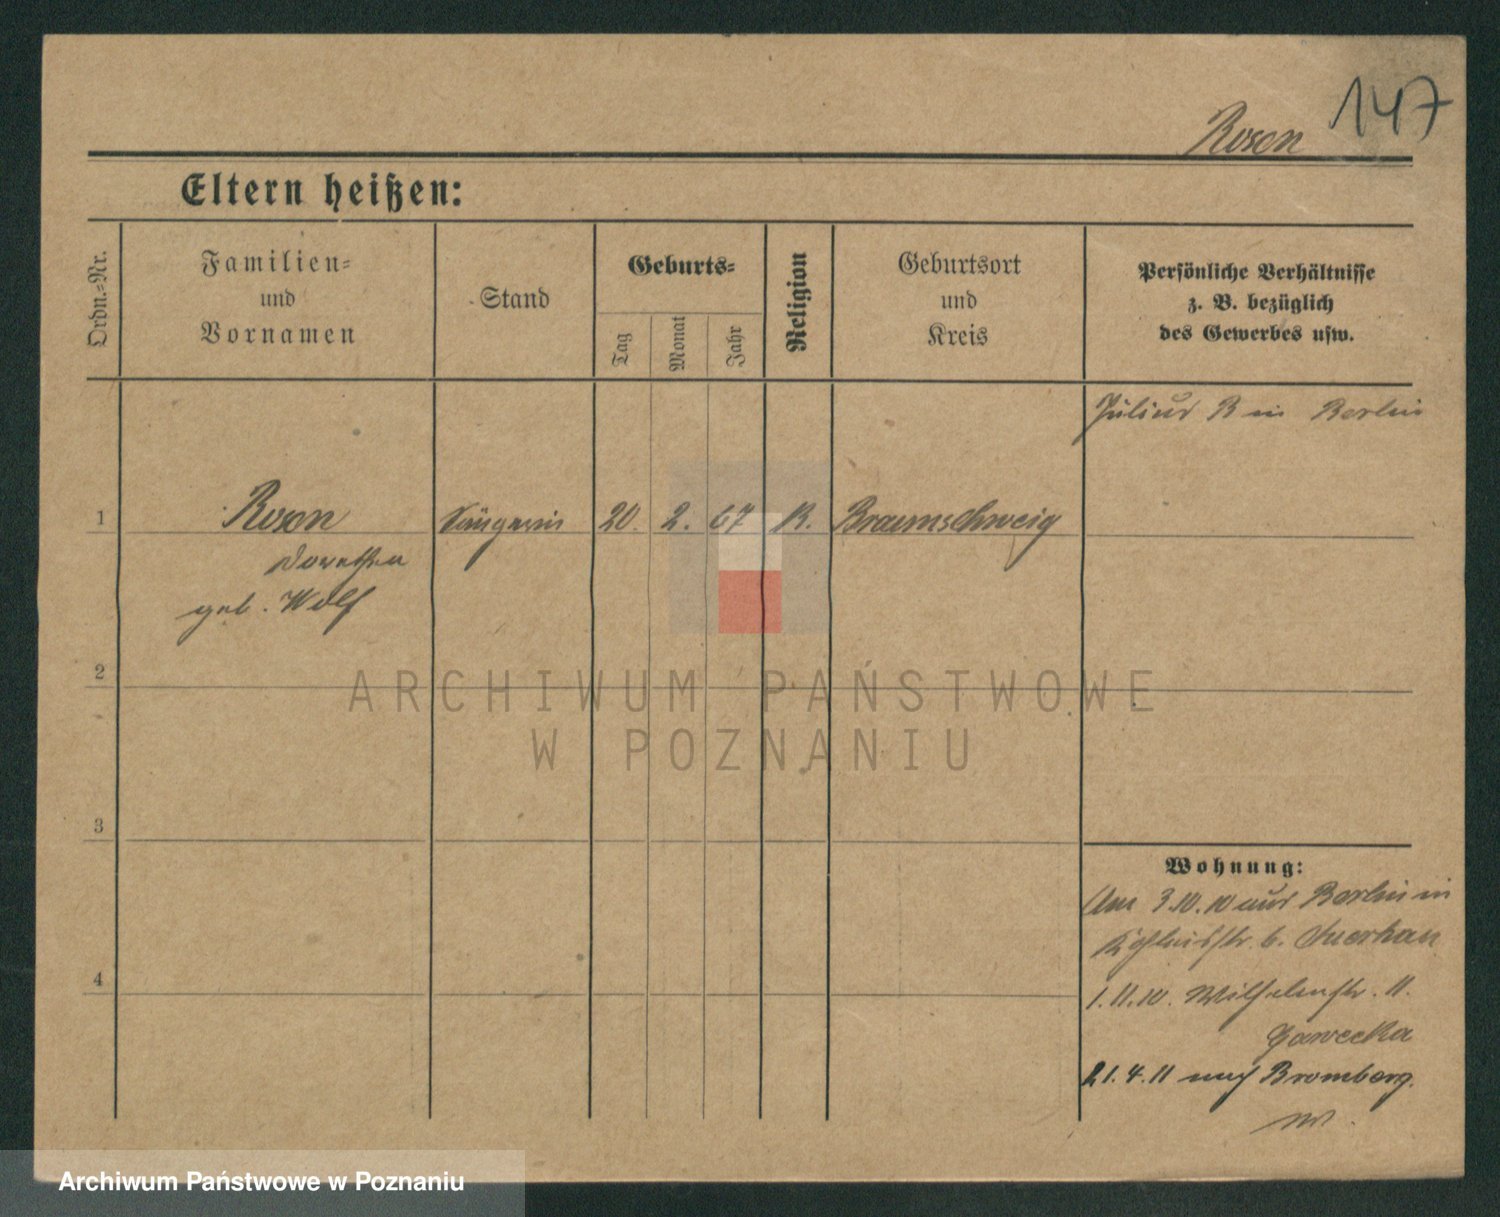 147
Rosen
Eltern heißen:
Ordn.-Nr.
Familien-
und
Vornamen
Stand
Geburts-
Tag
Monat
Jahr
Religion
Geburtsort
und
Kreis
Persönliche Verhältnisse
z. B. bezüglich
des Gewerbes usw.
Julius R in Berlin
1
Rosen
Sängerin
20.
2.
67
R.
Braunschweig
Dorothea
geb. Wolf
2
ARCHIWUM PAŃSTWOWE
W POZNANIU
3
Wohnung:
Am 3.10.10 aus Berlin in
b.
4
1.11.10. Wilhelmstr. 11.
Gawecka
21.4.11 nach Bromberg.
Archiwum Państwowe w Poznaniu